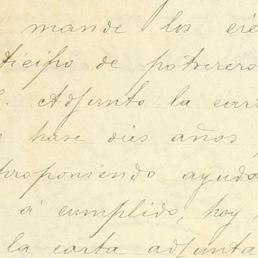 mande los cie
ticipo de potreros
Adjunto la carta
hase dies años,
proponiendo ayuda
á cumplido, hoy,
la carta adjunta